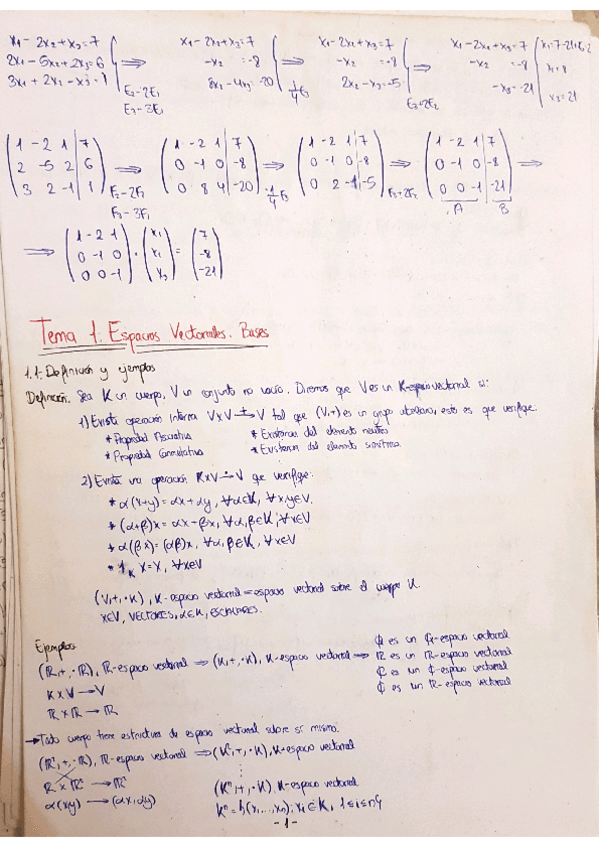 x₁ - 2x₂ + x₃ = 7
2x₁ - 5x₂ + 2x₃ = 6
3x₁ + 2x₂ - x₃ = 1
E₂-2E₁
E₃-3E₁
x₁ - 2x₂ + x₃ = 7
-x₂ = -8
8x₂ - 4x₃ = -20
1/4 E₃
x₁ - 2x₂ + x₃ = 7
-x₂ = -8
2x₂ - x₃ = -5
E₃+2E₂
x₁ - 2x₂ + x₃ = 7
-x₂ = -8
-x₃ = -21
x₂ = 8
x₃ = 21
1 -2 1 | 7
2 -5 2 | 6
3 2 -1 | 1
F₂-2F₁
F₃-3F₁
1 -2 1 | 7
0 -1 0 | -8
0 8 4 | -20
1/4 F₃
1 -2 1 | 7
0 -1 0 | -8
0 2 -1 | -5
F₃+2F₂
1 -2 1 | 7
0 -1 0 | -8
0 0 -1 | -21
A B
⟹ (1 -2 1; 0 -1 0; 0 0 -1) · (x₁; x₂; x₃) = (7; -8; -21)
Tema 1: Espacios Vectoriales. Bases
1.1: Definición y ejemplos
Definición. Sea K un cuerpo, V un conjunto no vacío. Diremos que V es un K-espacio vectorial si:
1) Existe operación interna V×V →⁺ V tal que (V,+) es un grupo abeliano, esto es que verifique:
* Propiedad Asociativa * Existencia del elemento neutro
* Propiedad Conmutativa * Existencia del elemento simétrico
2) Existe una operación K×V →˙ V que verifique:
* α(x+y) = αx + αy, ∀α∈K, ∀x,y∈V.
* (α+β)x = αx + βx, ∀α,β∈K, ∀x∈V
* α(βx) = (αβ)x, ∀α,β∈K, ∀x∈V
* 1ₖ x = x, ∀x∈V
(V,+,·K), K-espacio vectorial = espacio vectorial sobre el cuerpo K.
x∈V, VECTORES, α∈K, ESCALARES.
Ejemplos
(ℝ,+,·ℝ), ℝ-espacio vectorial ⟹ (K,+,·K), K-espacio vectorial ⟹
ℚ es un ℚ-espacio vectorial
ℝ es un ℝ-espacio vectorial
ℂ es un ℂ-espacio vectorial
ℂ es un ℝ-espacio vectorial
K×V → V
ℝ×ℝ → ℝ
→ Todo cuerpo tiene estructura de espacio vectorial sobre sí mismo.
(ℝ²,+,·ℝ), ℝ-espacio vectorial ⟹ (K²,+,·K), K-espacio vectorial
ℝ×ℝ² → ℝ²
⋮
(Kⁿ,+,·K), K-espacio vectorial
α(x,y) → (αx,αy)
Kⁿ = {(x₁,...,xₙ); xᵢ∈K, 1≤i≤n}
-1-